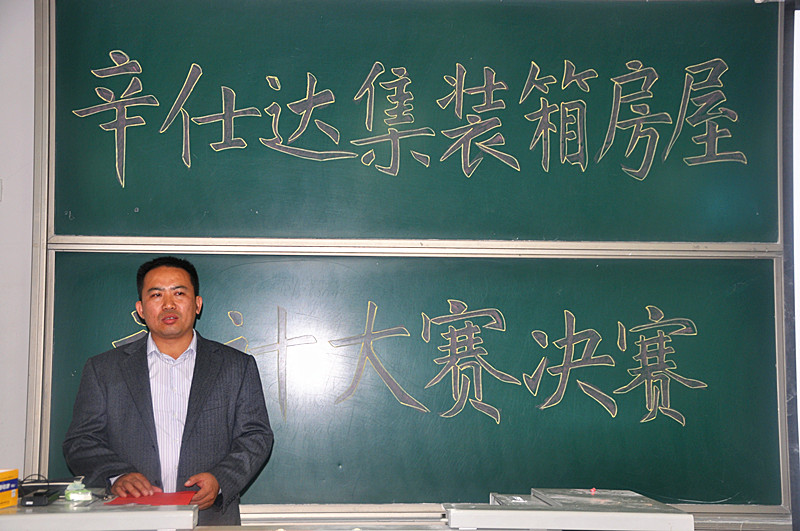 辛仕达集装箱房屋
设计大赛决赛